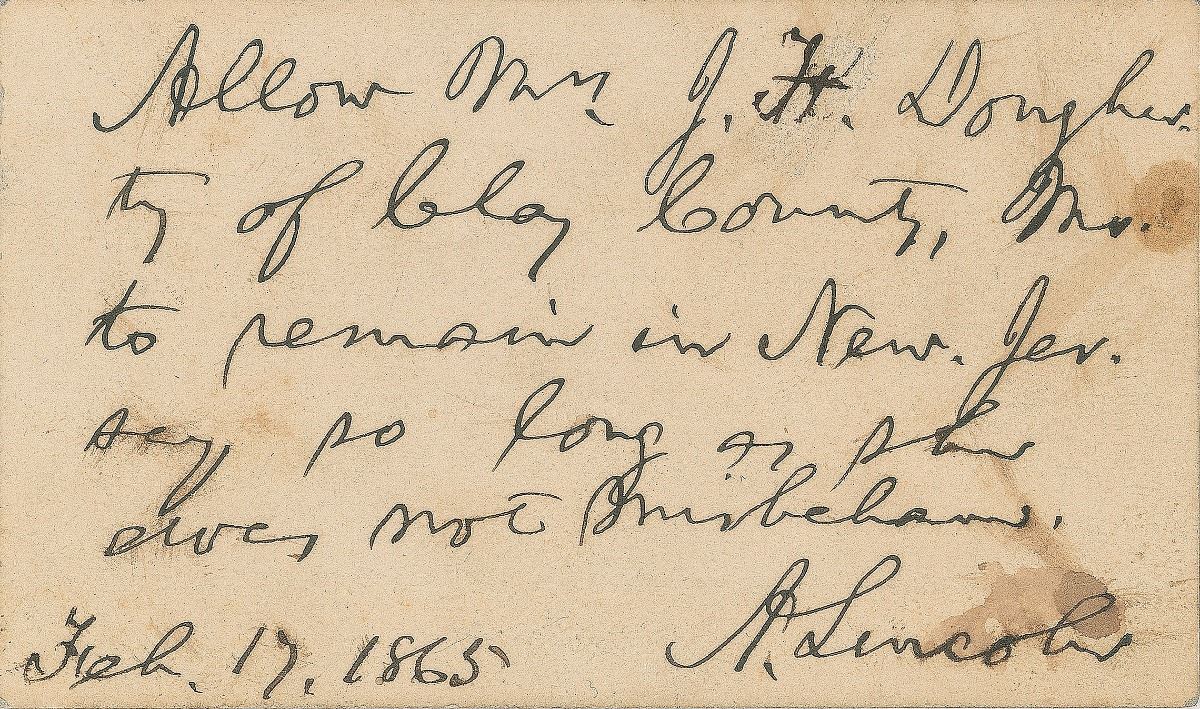 Allow Mrs. J. H. Dougher-
ty of Clay County, Mo.
to remain in New-Jer-
sey, so long as she
does not misbehave.
A. Lincoln
Feb. 17, 1865